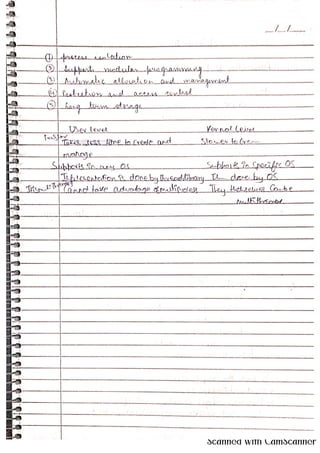 (1) process isolation
(2) Supports modular programming
(3) Automatic allocation and management
(4) Protection and access control
(5) Long term storage
User level Kernel Level
Takes less time to create and Slower to
manage
Supports in any OS Supports in specific OS
Implementation is done by thread library It done by OS
Cannot take advantage of They themselves can be
multithreaded
Scanned with CamScanner